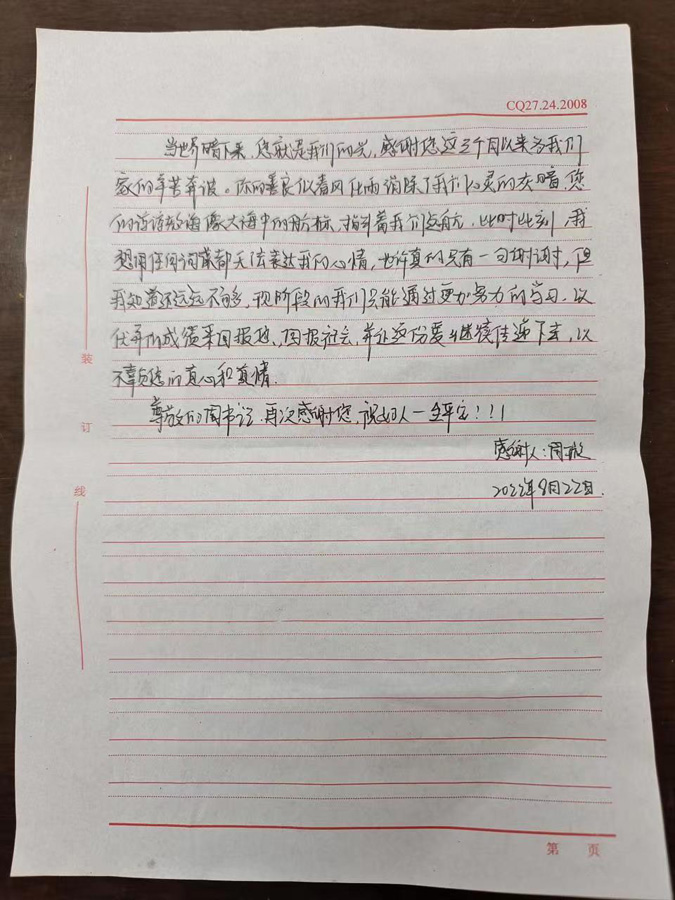 CQ27.24.2008
当世界暗下来,您就是我们的光,感谢您这三个月以来为我们
家的辛苦奔波。你的善良似春风化雨消除了我们心灵的灰暗,您
的谆谆教诲像大海中的航标,指引着我们远航。此时此刻,我
想用任何词藻都无法表达我的心情,也许真的只有一句谢谢,但
我知道还远远不够,现阶段的我们只能通过更加努力的学习,以
优异的成绩来回报您、回报社会,并让这份爱继续传递下去,以
不辜负您的真心和真情。
尊敬的周书记,再次感谢您,祝好人一生平安!!!
感谢人:周
2022年8月22日.
装
订
线
第 页